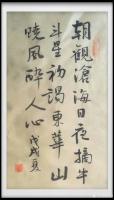 朝觀滄海日夜摘牛
斗星初謁東華山
曉風醉人心戊戌夏